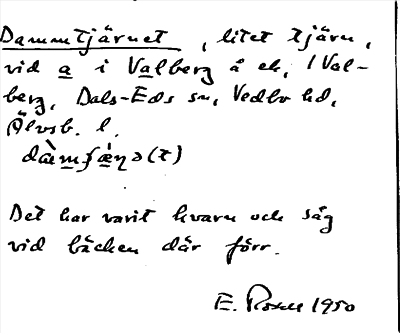 Dammtjärnet, litet tjärn,
vid a i Valberg å ek, 1 Val-
berg, Dals-Eds sn, Vedbo hd,
Älvsb. l.
Det har varit kvarn och såg
vid bäcken där förr.
E. 1950